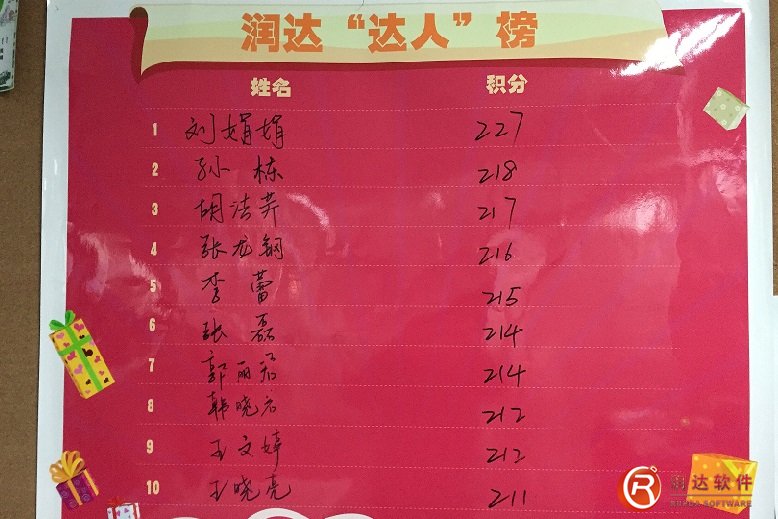 润达“达人”榜
姓名 积分
1 刘娟娟 227
2 孙栋 218
3 胡洁芹 217
4 张龙钢 216
5 李蕾 215
6 张磊 214
7 郭丽君 214
8 韩晓宏 212
9 王文婷 212
10 王晓亮 211
润达软件
RUNDA SOFTWARE